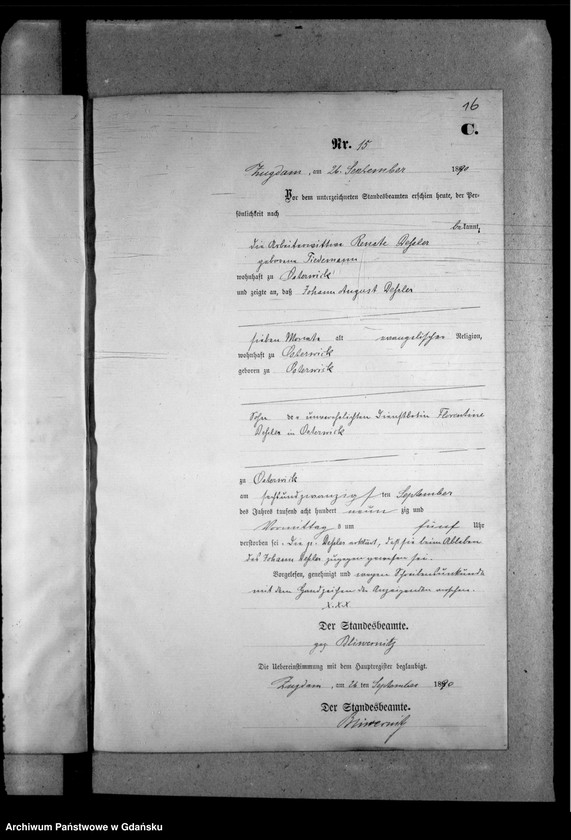 16
C.
Nr. 15
Zugdam, am 26. September 1890
Vor dem unterzeichneten Standesbeamten erschien heute, der Per-
sönlichkeit nach
bekannt,
die Arbeiterwittwe Renate Dehler
geborene Tiedemann
wohnhaft zu Osterwick
und zeigte an, daß Johann August Dehler
sieben Monate alt evangelischer Religion,
wohnhaft zu Osterwick
geboren zu Osterwick
Sohn der unverehelichten Dienstbotin Florentine
Dehler in Osterwick
zu Osterwick
am sechsundzwanzigsten September
des Jahres tausend acht hundert neunzig und
Vormittags um fünf Uhr
verstorben sei. Die p. Dehler erklärt, daß sie beim Ableben
des Johann Dehler zugegen gewesen sei.
Vorgelesen, genehmigt und wegen Schreibensunkunde
mit dem Handzeichen der Anzeigenden versehen.
X.X.X
Der Standesbeamte.
gez
Die Uebereinstimmung mit dem Hauptregister beglaubigt.
Zugdam, am 26 ten September 1890
Der Standesbeamte.
Archiwum Państwowe w Gdańsku